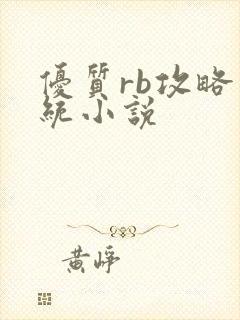 優質rb攻略
統小說
黃崢